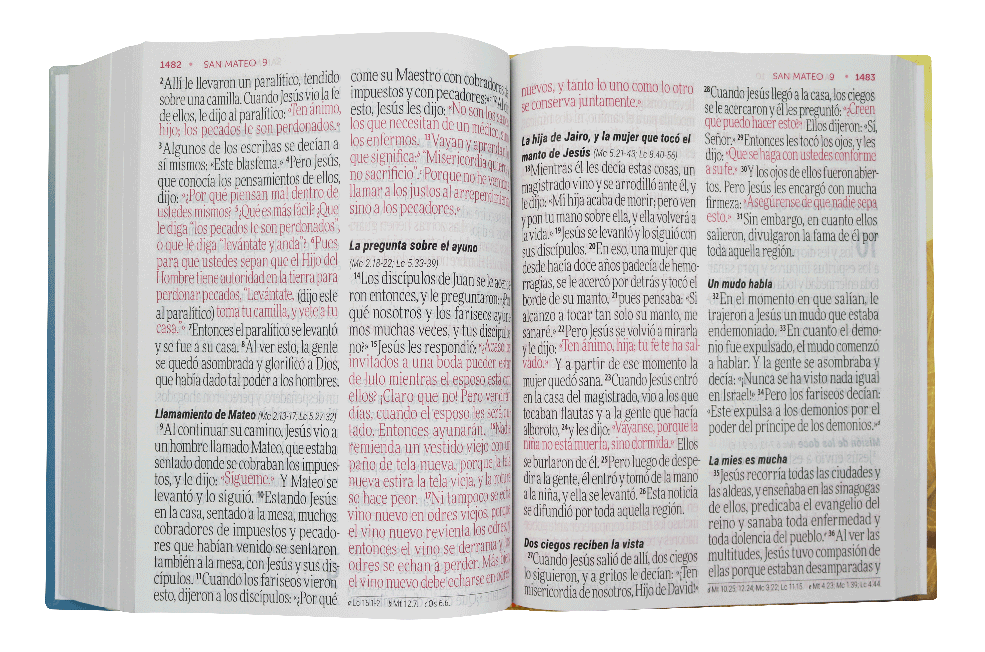 1482 • SAN MATEO 9
²Allí le llevaron un paralítico, tendido
sobre una camilla. Cuando Jesús vio la fe
de ellos, le dijo al paralítico: «Ten ánimo,
hijo; los pecados te son perdonados.»
³Algunos de los escribas se decían a
sí mismos: «Este blasfema.» ⁴Pero Jesús,
que conocía los pensamientos de ellos,
dijo: «¿Por qué piensan mal dentro de
ustedes mismos? ⁵¿Qué es más fácil? ¿Que
le diga “los pecados te son perdonados”,
o que le diga “levántate y anda”? ⁶Pues
para que ustedes sepan que el Hijo del
Hombre tiene autoridad en la tierra para
perdonar pecados, “Levántate, (dijo este
al paralítico) toma tu camilla, y vete a tu
casa.”» ⁷Entonces el paralítico se levantó
y se fue a su casa. ⁸Al ver esto, la gente
se quedó asombrada y glorificó a Dios,
que había dado tal poder a los hombres.
Llamamiento de Mateo (Mc 2.13-17; Lc 5.27-32)
⁹Al continuar su camino, Jesús vio a
un hombre llamado Mateo, que estaba
sentado donde se cobraban los impues-
tos, y le dijo: «Sígueme.» Y Mateo se
levantó y lo siguió. ¹⁰Estando Jesús
en la casa, sentado a la mesa, muchos
cobradores de impuestos y pecado-
res que habían venido se sentaron
también a la mesa, con Jesús y sus dis-
cípulos. ¹¹Cuando los fariseos vieron
esto, dijeron a los discípulos: «¿Por qué
come su Maestro con cobradores
impuestos y con pecadores?»
esto, Jesús les dijo: «No son los
los que necesitan de un médico,
los enfermos. ¹³Vayan y aprendan
que significa: “Misericordia
no sacrificio”. Porque no he venido
llamar a los justos al
sino a los pecadores.»
La pregunta sobre el ayuno
(Mc 2.18-22; Lc 5.33-39)
¹⁴Los discípulos de Juan se le
ron entonces, y le preguntaron:
qué nosotros y los fariseos
mos muchas veces, y tus
no?» ¹⁵Jesús les respondió:
invitados a una boda pueden
de luto mientras el esposo está con
ellos? ¡Claro que no! Pero
días, cuando el esposo les será
tado. Entonces ayunarán.
remienda un vestido viejo con
paño de tela nueva, porque la tela
nueva estira la tela vieja, y la
se hace peor. ¹⁷Ni tampoco se echa
vino nuevo en odres viejos, porque
el vino nuevo revienta los odres,
entonces el vino se derrama y los
odres se echan a perder. Más bien,
el vino nuevo debe echarse en odres
a Lc 15.1-2. b Mt 12.7. c Os 6.6.
SAN MATEO 9 • 1483
nuevos, y tanto lo uno como lo otro
se conserva juntamente.»
La hija de Jairo, y la mujer que tocó el
manto de Jesús (Mc 5.21-43; Lc 8.40-56)
¹⁸Mientras él les decía estas cosas, un
magistrado vino y se arrodilló ante él, y
le dijo: «Mi hija acaba de morir; pero ven
y pon tu mano sobre ella, y ella volverá a
la vida.» ¹⁹Jesús se levantó y lo siguió con
sus discípulos. ²⁰En eso, una mujer que
desde hacía doce años padecía de hemo-
rragias, se le acercó por detrás y tocó el
borde de su manto, ²¹pues pensaba: «Si
alcanzo a tocar tan solo su manto, me
sanaré.» ²²Pero Jesús se volvió a mirarla
y le dijo: «Ten ánimo, hija; tu fe te ha sal-
vado.» Y a partir de ese momento la
mujer quedó sana. ²³Cuando Jesús entró
en la casa del magistrado, vio a los que
tocaban flautas y a la gente que hacía
alboroto, ²⁴y les dijo: «Váyanse, porque la
niña no está muerta, sino dormida.» Ellos
se burlaron de él. ²⁵Pero luego de despe-
dir a la gente, él entró y tomó de la mano
a la niña, y ella se levantó. ²⁶Esta noticia
se difundió por toda aquella región.
Dos ciegos reciben la vista
²⁷Cuando Jesús salió de allí, dos ciegos
lo siguieron, y a gritos le decían: «¡Ten
misericordia de nosotros, Hijo de David!»
²⁸Cuando llegó a la casa, los ciegos
se le acercaron y él les preguntó: «¿Creen
que puedo hacer esto?» Ellos dijeron: «Sí,
Señor.» ²⁹Entonces les tocó los ojos, y les
dijo: «Que se haga con ustedes conforme
a su fe.» ³⁰Y los ojos de ellos fueron abier-
tos. Pero Jesús les encargó con mucha
firmeza: «Asegúrense de que nadie sepa
esto.» ³¹Sin embargo, en cuanto ellos
salieron, divulgaron la fama de él por
toda aquella región.
Un mudo habla
³²En el momento en que salían, le
trajeron a Jesús un mudo que estaba
endemoniado. ³³En cuanto el demo-
nio fue expulsado, el mudo comenzó
a hablar. Y la gente se asombraba y
decía: «¡Nunca se ha visto nada igual
en Israel!» ³⁴Pero los fariseos decían:
«Este expulsa a los demonios por el
poder del príncipe de los demonios.»
La mies es mucha
³⁵Jesús recorría todas las ciudades y
las aldeas, y enseñaba en las sinagogas
de ellos, predicaba el evangelio del
reino y sanaba toda enfermedad y
toda dolencia del pueblo. ³⁶Al ver las
multitudes, Jesús tuvo compasión de
ellas porque estaban desamparadas y
d Mt 10.25; 12.24; Mc 3.22; Lc 11.15. e Mt 4.23; Mc 1.39; Lc 4.44.